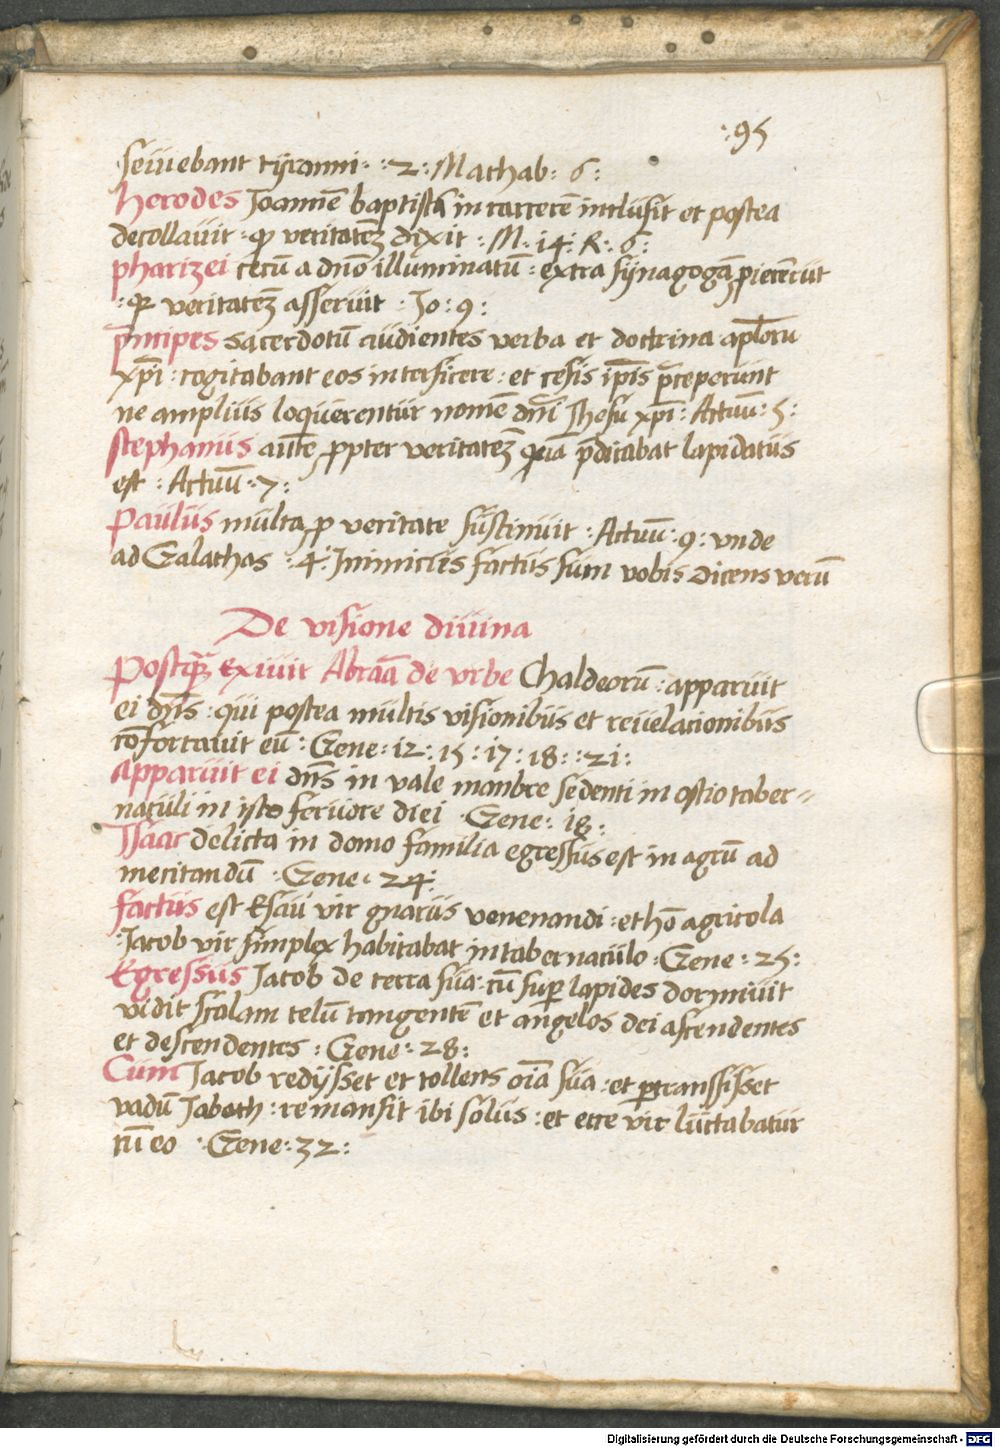 : 95
seuiebant tÿranni : 2 : Machab : 6 :
herodes Joannē baptistā in carcerē inclusit et postea
decollauit : qꝫ veritatēꝫ dixit : M. 14 : R. 6 :
pharizei cecū a dn̄o illuminatū : extra sÿnagogāꝫ ꝓiecerūt
: qꝫ veritatēꝫ asseruit : Jo : 9 :
p̄ncipes sacerdotū audientes verba et doctrina apl̄oru
xp̄i : cogitabant eos interficere : et cesis ip̄is p̄ceperunt
ne amplius loquerentur nomē dn̄i Jhesu xp̄i : Actuū : 5 :
stephanus aūte ꝓpter veritatēꝫ quā p̄dicabat lapidatus
est : Actuū : 7 :
Paulus multa ꝓ veritate sustinuit : Actuū : 9 : vnde
ad Galathas : 4 : Jnimicus factus sum vobis dicens verū
De visione diuina
Postqꝫ exiuit Abraā de vrbe Chaldeorū : apparuit
ei dn̄s : qui postea multis visionibus et reuelacionibus
cōfortauit eū : Gene : 12 : 15 : 17 : 18 : 21 :
Apparuit ei dn̄s in vale manbre sedenti in ostio taber=
naculi in isto feruore diei : Gene : 18 :
Jsaac delicta in domo familia egressus est in agrū ad
meritandū : Gene : 24 :
factus est Esau vir gnarus venenandi : et hō agricola
: Jacob vir simplex habitabat in tabernaculo : Gene : 25 :
Egressus Jacob de terra sua : cū suꝑ lapides dormiuit
vidit scalam celū tangentē et angelos dei ascendentes
et descendentes : Gene : 28 :
Cum Jacob redÿsset et tollens oīa sua : et ꝑtranssisset
vadū Jaboth : remansit ibi solus : et ecce vir luctabatur
cū eo : Gene : 32 :
Digitalisierung gefördert durch die Deutsche Forschungsgemeinschaft - DFG